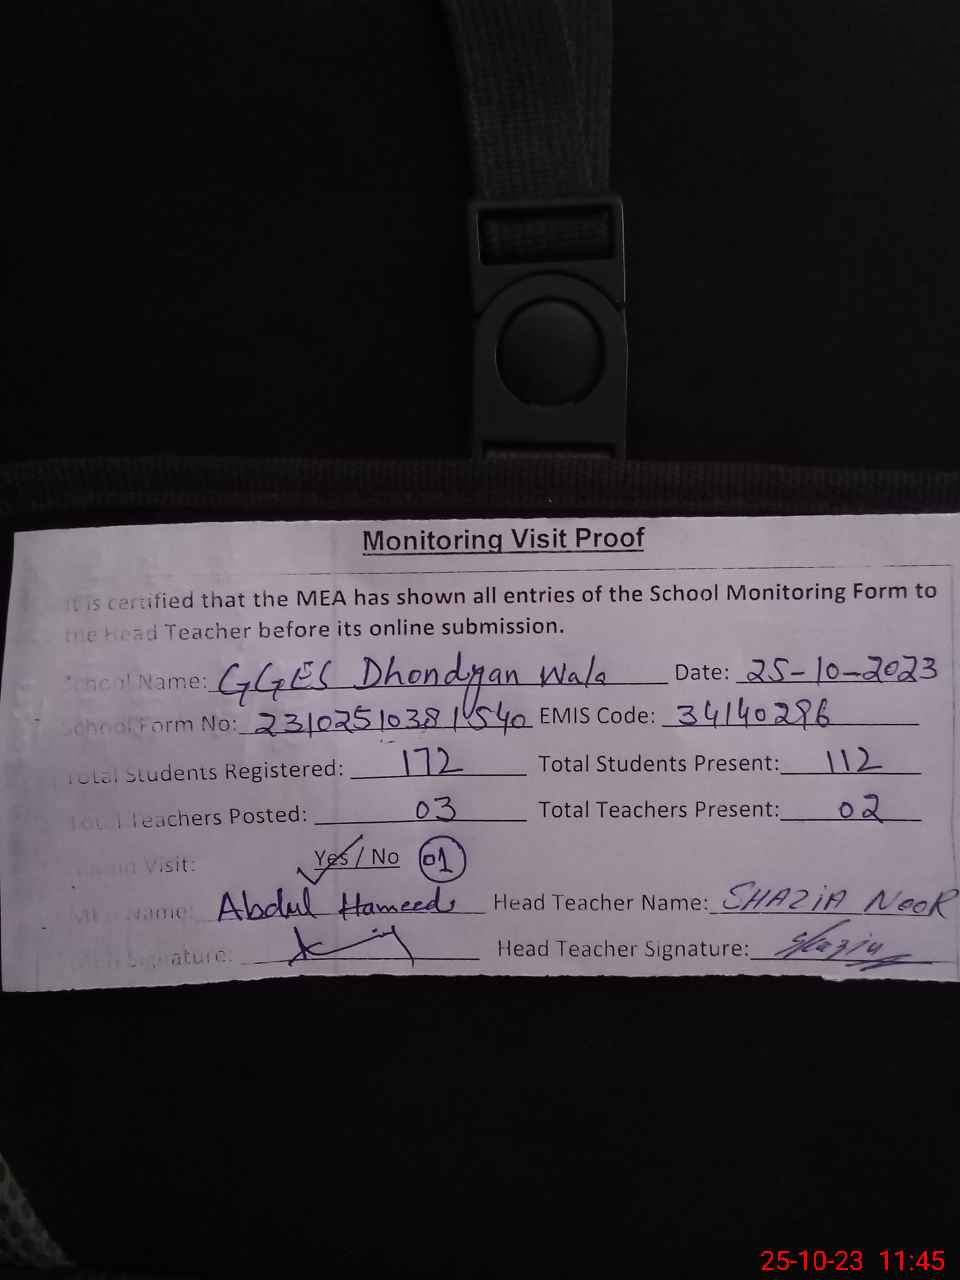 Monitoring Visit Proof
It is certified that the MEA has shown all entries of the School Monitoring Form to
the Head Teacher before its online submission.
School Name: GGES Dhondyan Wala Date: 25-10-2023
School Form No: 23102510381540 EMIS Code: 34140296
Total Students Registered: 172 Total Students Present: 112
Total Teachers Posted: 03 Total Teachers Present: 02
Visit: Yes / No 01
MEA Name: Abdul Hameed Head Teacher Name: SHAZIA NOOR
MEA Signature: Head Teacher Signature: Shazia
25-10-23 11:45